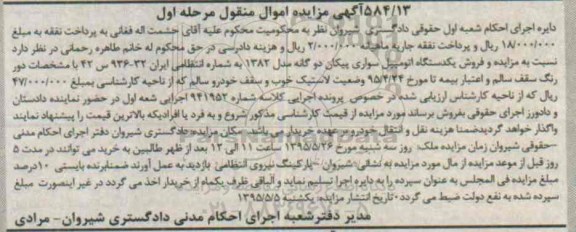 ۵۸۴/۱۳آگهی مزایده اموال منقول مرحله اول
دایره اجرای احکام شعبه اول حقوقی دادگستری شیروان نظر به محکومیت محکوم علیه آقای حشمت اله فغانی به پرداخت نفقه به مبلغ
۱۸/۰۰۰/۰۰۰ ریال و پرداخت نفقه جاریه ماهیانه ۲/۰۰۰/۰۰۰ ریال و هزینه دادرسی در حق محکوم له خانم طاهره رحمانی در نظر دارد
نسبت به مزایده و فروش یکدستگاه اتومبیل سواری پیکان دو گانه مدل ۱۳۸۲ به شماره انتظامی ایران ۳۲-۹۳۶ س ۴۲ با مشخصات دور
رنگ سقف سالم و اعتبار بیمه تا مورخ ۹۵/۴/۲۴ وضعیت لاستیک خوب و سقف خودرو سالم که از ناحیه کارشناسی بمبلغ ۴۷/۰۰۰/۰۰۰
ریال که از ناحیه کارشناس ارزیابی شده در خصوص پرونده اجرایی کلاسه شماره ۹۴۱۹۵۲ اجرایی شعبه اول در حضور نماینده دادستان
و دادورز اجرای حقوقی بفروش برساند مورد مزایده از قیمت کارشناسی مذکور شروع و به فرد یا افرادیکه بالاترین قیمت را پیشنهاد نمایند
واگذار خواهد گردیدضمنا هزینه نقل و انتقال خودرو بر عهده خریدار می باشد. مکان مزایده: دادگستری شیروان دفتر اجرای احکام مدنی
-حقوقی شیروان زمان مزایده ملک: روز سه شنبه مورخ ۱۳۹۵/۵/۲۶ ساعت ۱۱ الی ۱۲ بعد از ظهر طالبین به خرید می توانند در مدت ۵
روز قبل از موعد مزایده از مال مورد مزایده به نشانی: شیروان - پارکینگ نیروی انتظامی بازدید به عمل آورند ضمنابرنده بایستی ۱۰درصد
مبلغ مزایده فی المجلس به عنوان سپرده را به دایره اجرا تسلیم نماید و الباقی ظرف یکماه از خریدار اخذ می گردد در غیر اینصورت مبلغ
سپرده شده به نفع دولت ضبط می گردد*تاریخ انتشار مزایده: یکشنبه ۱۳۹۵/۵/۵
مدیر دفترشعبه اجرای احکام مدنی دادگستری شیروان- مرادی